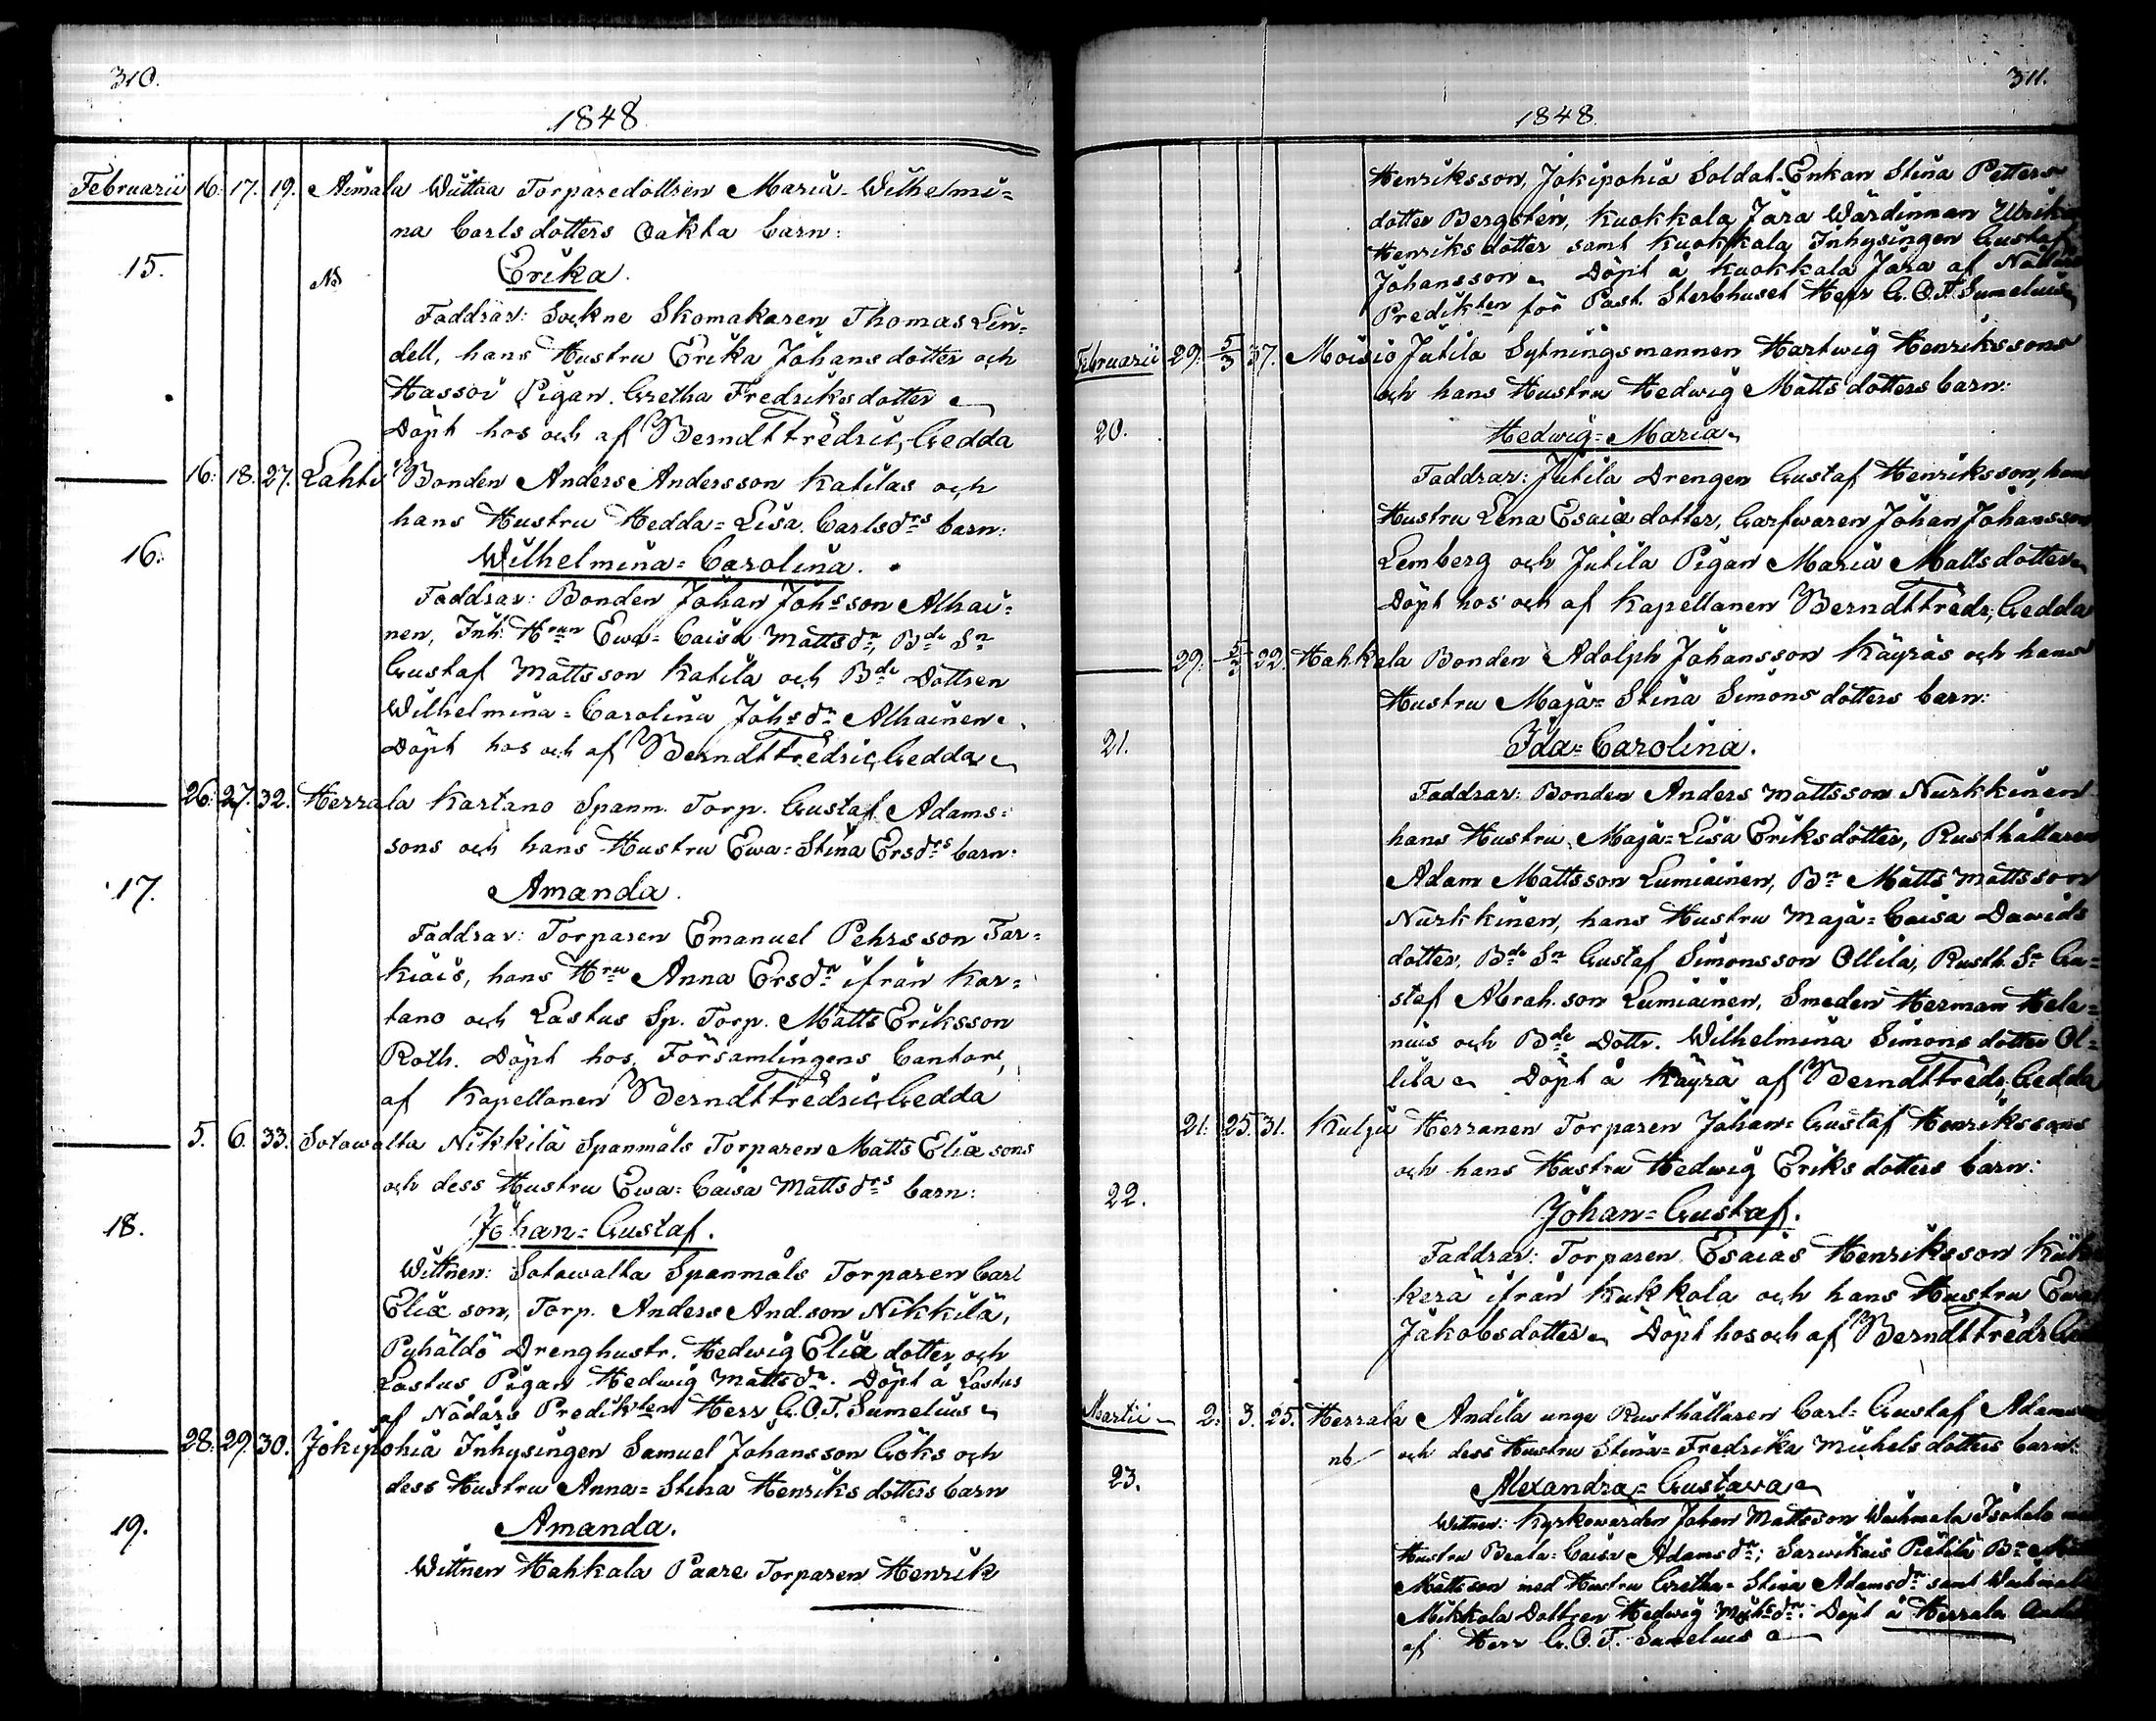 310.
1848.
Februarii 16. 17. 19. Aimala Wuttaa Torparedottren Maria=Wilhelmi=
na Carlsdotters Oäkta barn:
15. Nb Erika.
Faddrar: Sockne Skomakaren Thomas Lin=
dell, hans Hustru Erika Johansdotter och
Hassoi Pigan Gretha Fredriksdotter
Döpt hos och af Berndt Fredric Gedda
16. 18. 27. Lahti Bonden Anders Andersson Katilas och
hans Hustru Hedda=Lisa Carlsdrs barn:
16. Wilhelmina=Carolina.
Faddrar: Bonden Johan Johsson Alhai=
nen, Inh. Hrun Ewa=Caisa Mattsdr, Bde Sn
Gustaf Mattsson Katila och Bde Dottren
Wilhelmina=Carolina Johsdr Alhainen.
Döpt hos och af Berndt Fredric Gedda
26. 27. 32. Herrala Kartano Spanm. Torp. Gustaf Adams=
sons och hans Hustru Ewa=Stina Ersdrs barn:
17. Amanda.
Faddrar: Torparen Emanuel Pehrsson Tar=
kiais, hans Hru Anna Ersdr ifrån Kar=
tano och Lastus Sp. Torp. Matts Eriksson
Roth. Döpt hos Församlingens Cantor,
af Kapellanen Berndt Fredric Gedda
5. 6. 33. Sotawalta Nikkilä Spanmåls Torparen Matts Eliæ sons
och dess Hustru Ewa=Caisa Mattsdrs barn:
18. Johan=Gustaf.
Wittnen: Sotawalta Spanmåls Torparen Carl
Eliæ son, Torp. Anders And.son Nikkilä,
Pyhäldö Drenghustr. Hedwig Eliæ dotter och
Lastus Pigan Hedwig Mattsdr. Döpt å Lastus
af Nådårs Predikten Herr G.O.T. Sumelius
28. 29. 30. Jokipohia Inhysingen Samuel Johansson Göks och
dess Hustru Anna=Stina Henriksdotters barn
19. Amanda.
Wittnen Hahkala Paare Torparen Henrik
311.
1848.
Henriksson, Jokipohia Soldat Enkan Stina Petters
dotter Bergstén, Kuokkala Jara Wärdinnan Ulrika
Henriksdotter samt Kuokkala Inhysingen Gustaf
Johansson. Döpt å Kuokkala Jara af Nådårs
Predikten för Past. Sterbhuset Herr G.O.T. Sumelius
Februarii 29. 5/3 37. Moisio Jutila Sytningsmannen Hartwig Henrikssons
och hans Hustru Hedwig Mattsdotters barn:
20. Hedwig=Maria.
Faddrar: Jutila Drengen Gustaf Henriksson, hans
Hustru Lena Esaiædotter, Garfwaren Johan Johansson
Lemberg och Jutila Pigan Maria Mattsdotter
Döpt hos och af Kapellanen Berndt Fredr. Gedda
29. 5/3 22. Hahkala Bonden Adolph Johansson Käyräs och hans
Hustru Maja=Stina Simonsdotters barn:
21. Ida=Carolina.
Faddrar: Bonden Anders Mattsson Nurkkinen
hans Hustru Maja=Lisa Eriksdotter, Rusthållaren
Adam Mattsson Lumiainen, Bn Matts Mattsson
Nurkkinen, hans Hustru Maja=Caisa Dawids
dotter, Bde Sn Gustaf Simonsson Ollila, Rusth. Sn Gu=
staf Abrah.son Lumiainen, Smeden Herman Hele=
nius och Bde Dottr. Wilhelmina Simonsdotter Ol=
lila. Döpt å Käyrä af Berndt Fredr. Gedda
21. 25. 31. Kulju Herranen Torparen Johan=Gustaf Henrikssons
och hans Hustru Hedwig Eriksdotters barn:
22. Johan=Gustaf.
Faddrar: Torparen Esaias Henriksson
kerä ifrån Kukkola och hans Hustru Ewa
Jakobsdotter. Döpt hos och af Berndt Fredr.
Martii 2. 3. 25. Herrala Andila unge Rusthållaren Carl=Gustaf
nb och dess Hustru Stina=Fredrika Michelsdotters barn:
23. Alexandra=Gustava
Wittnen: Kyrkowärden Johan Mattsson
Hustru Beata=Caisa Adamsdr; Sarwikais Pietilä Bn
Mattsson med Hustru Gretha=Stina Adamsdr samt
Mikkola Dottren Hedwig Döpt å Herrala
af Herr G.O.T. Sumelius